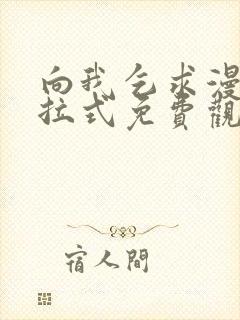 向我乞求漫
拉式免費觀
宿人間